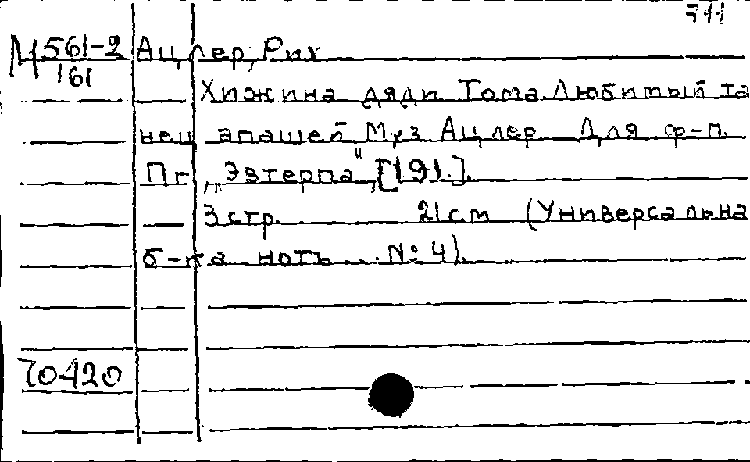 М 561-2 Ацлер, Рих
161
Хижина дяди Тома. Любимый та
нец апашей. Муз. Ацлер. Для ф-п.
Пг. „Эвтерпа", [191.].
3 стр. 21 см (Универсальна
б-ка нотъ... № 4).
70420